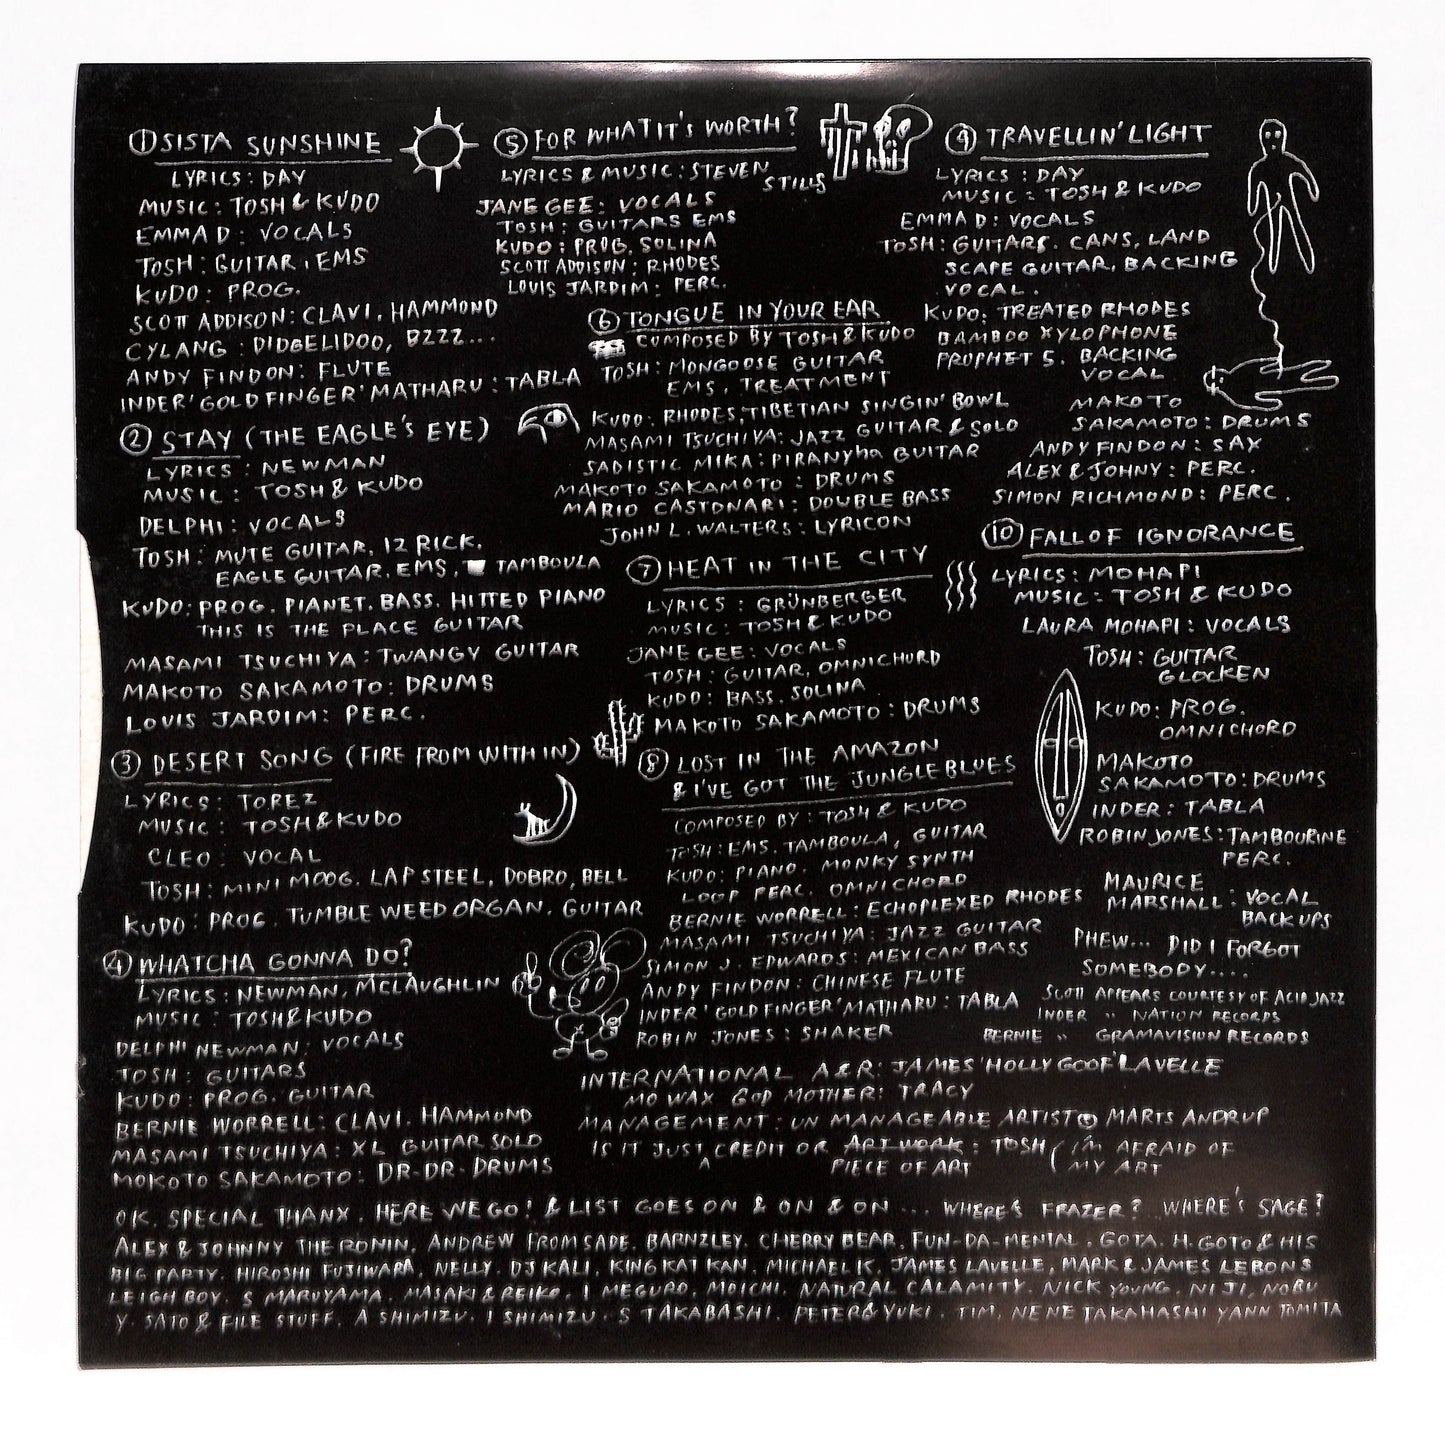 ① SISTA SUNSHINE
LYRICS : DAY
MUSIC : TOSH & KUDO
EMMA D : VOCALS
TOSH : GUITAR, EMS
KUDO : PROG.
SCOTT ADDISON : CLAVI. HAMMOND
CYLANG : DIDGELIDOO, BZZZ...
ANDY FINDON : FLUTE
INDER 'GOLDFINGER' MATHARU : TABLA
② STAY (THE EAGLE'S EYE)
LYRICS : NEWMAN
MUSIC : TOSH & KUDO
DELPHI : VOCALS
TOSH : MUTE GUITAR. 12 RICK.
EAGLE GUITAR. EMS. TAMBOULA
KUDO : PROG. PIANET. BASS. HITTED PIANO
THIS IS THE PLACE GUITAR
MASAMI TSUCHIYA : TWANGY GUITAR
MAKOTO SAKAMOTO : DRUMS
LOUIS JARDIM : PERC.
③ DESERT SONG (FIRE FROM WITHIN)
LYRICS : TOREZ
MUSIC : TOSH & KUDO
CLEO : VOCAL
TOSH : MINI MOOG. LAP STEEL. DOBRO, BELL
KUDO : PROG. TUMBLE WEED ORGAN. GUITAR
④ WHATCHA GONNA DO?
LYRICS : NEWMAN. MCLAUGHLIN
MUSIC : TOSH & KUDO
DELPHI NEWMAN : VOCALS
TOSH : GUITARS
KUDO : PROG. GUITAR
BERNIE WORRELL : CLAVI. HAMMOND
MASAMI TSUCHIYA : XL GUITAR SOLO
MOKOTO SAKAMOTO : DR-DR- DRUMS
⑤ FOR WHAT IT'S WORTH?
LYRICS & MUSIC : STEVEN
STILLS
JANE GEE : VOCALS
TOSH : GUITARS EMS
KUDO : PROG. SOLINA
SCOTT ADDISON : RHODES
LOUIS JARDIM : PERC.
⑥ TONGUE IN YOUR EAR
COMPOSED BY TOSH & KUDO
TOSH : MONGOOSE GUITAR
EMS. TREATMENT
KUDO : RHODES, TIBETIAN SINGIN' BOWL
MASAMI TSUCHIYA : JAZZ GUITAR & SOLO
SADISTIC MIKA : PIRANYha GUITAR
MAKOTO SAKAMOTO : DRUMS
MARIO CASTONARI : DOUBLE BASS
JOHN L. WALTERS : LYRICON
⑦ HEAT IN THE CITY
LYRICS : GRÜNBERGER
MUSIC : TOSH & KUDO
JANE GEE : VOCALS
TOSH : GUITAR, OMNICHORD
KUDO : BASS. SOLINA
MAKOTO SAKAMOTO : DRUMS
⑧ LOST IN THE AMAZON
& I'VE GOT THE JUNGLE BLUES
COMPOSED BY : TOSH & KUDO
TOSH : EMS. TAMBOULA, GUITAR
KUDO : PIANO. MONKY SYNTH
LOOP PERC. OMNICHORD
BERNIE WORRELL : ECHOPLEXED RHODES
MASAMI TSUCHIYA : JAZZ GUITAR
SIMON J. EDWARDS : MEXICAN BASS
ANDY FINDON : CHINESE FLUTE
INDER 'GOLDFINGER' MATHARU : TABLA
ROBIN JONES : SHAKER
⑨ TRAVELLIN' LIGHT
LYRICS : DAY
MUSIC : TOSH & KUDO
EMMA D : VOCALS
TOSH : GUITARS. CANS. LAND
SCAPE GUITAR. BACKING
VOCAL.
KUDO : TREATED RHODES
BAMBOO XYLOPHONE
PROPHET 5. BACKING
VOCAL
MAKOTO
SAKAMOTO : DRUMS
ANDY FINDON : SAX
ALEX & JOHNY : PERC.
SIMON RICHMOND : PERC.
⑩ FALL OF IGNORANCE
LYRICS : MOHAPI
MUSIC : TOSH & KUDO
LAURA MOHAPI : VOCALS
TOSH : GUITAR
GLOCKEN
KUDO : PROG.
OMNICHORD
MAKOTO
SAKAMOTO : DRUMS
INDER : TABLA
ROBIN JONES : TAMBOURINE
PERC.
MAURICE
MARSHALL : VOCAL
BACK UPS
PHEW... DID I FORGOT
SOMEBODY....
SCOTT APPEARS COURTESY OF ACID JAZZ
INDER " NATION RECORDS
BERNIE " GRAMAVISION RECORDS
INTERNATIONAL A&R : JAMES 'HOLLY GOOF' LAVELLE
MO WAX GOD MOTHER : TRACY
MANAGEMENT : UN MANAGEABLE ARTIST @ MARTS ANDRUP
IS IT JUST CREDIT OR ART WORK : TOSH (I'M AFRAID OF
PIECE OF ART MY ART
OK. SPECIAL THANX. HERE WE GO! & LIST GOES ON & ON & ON ... WHERE'S FRAZER? WHERE'S SAGE?
ALEX & JOHNNY THE RONIN. ANDREW FROMSADE. BARNZLEY. CHERRY BEAR. FUN-DA-MENTAL. GOTA. H. GOTO & HIS
BIG PARTY. HIROSHI FUJIWARA. NELLY. DJ KALI. KING KAT KAN. MICHAEL K. JAMES LAVELLE. MARK & JAMES LEBONS
LEIGH BOY. S MARUYAMA. MASAKI & REIKO. I MEGURO. MOICHI. NATURAL CALAMITY. NICK YOUNG. NIJI, NOBU
Y. SATO & FILE STUFF. A SHIMIZU. I SHIMIZU. S TAKABASHI. PETER & YUKI. TIM. NENE TAKAHASHI YANN TOMITA